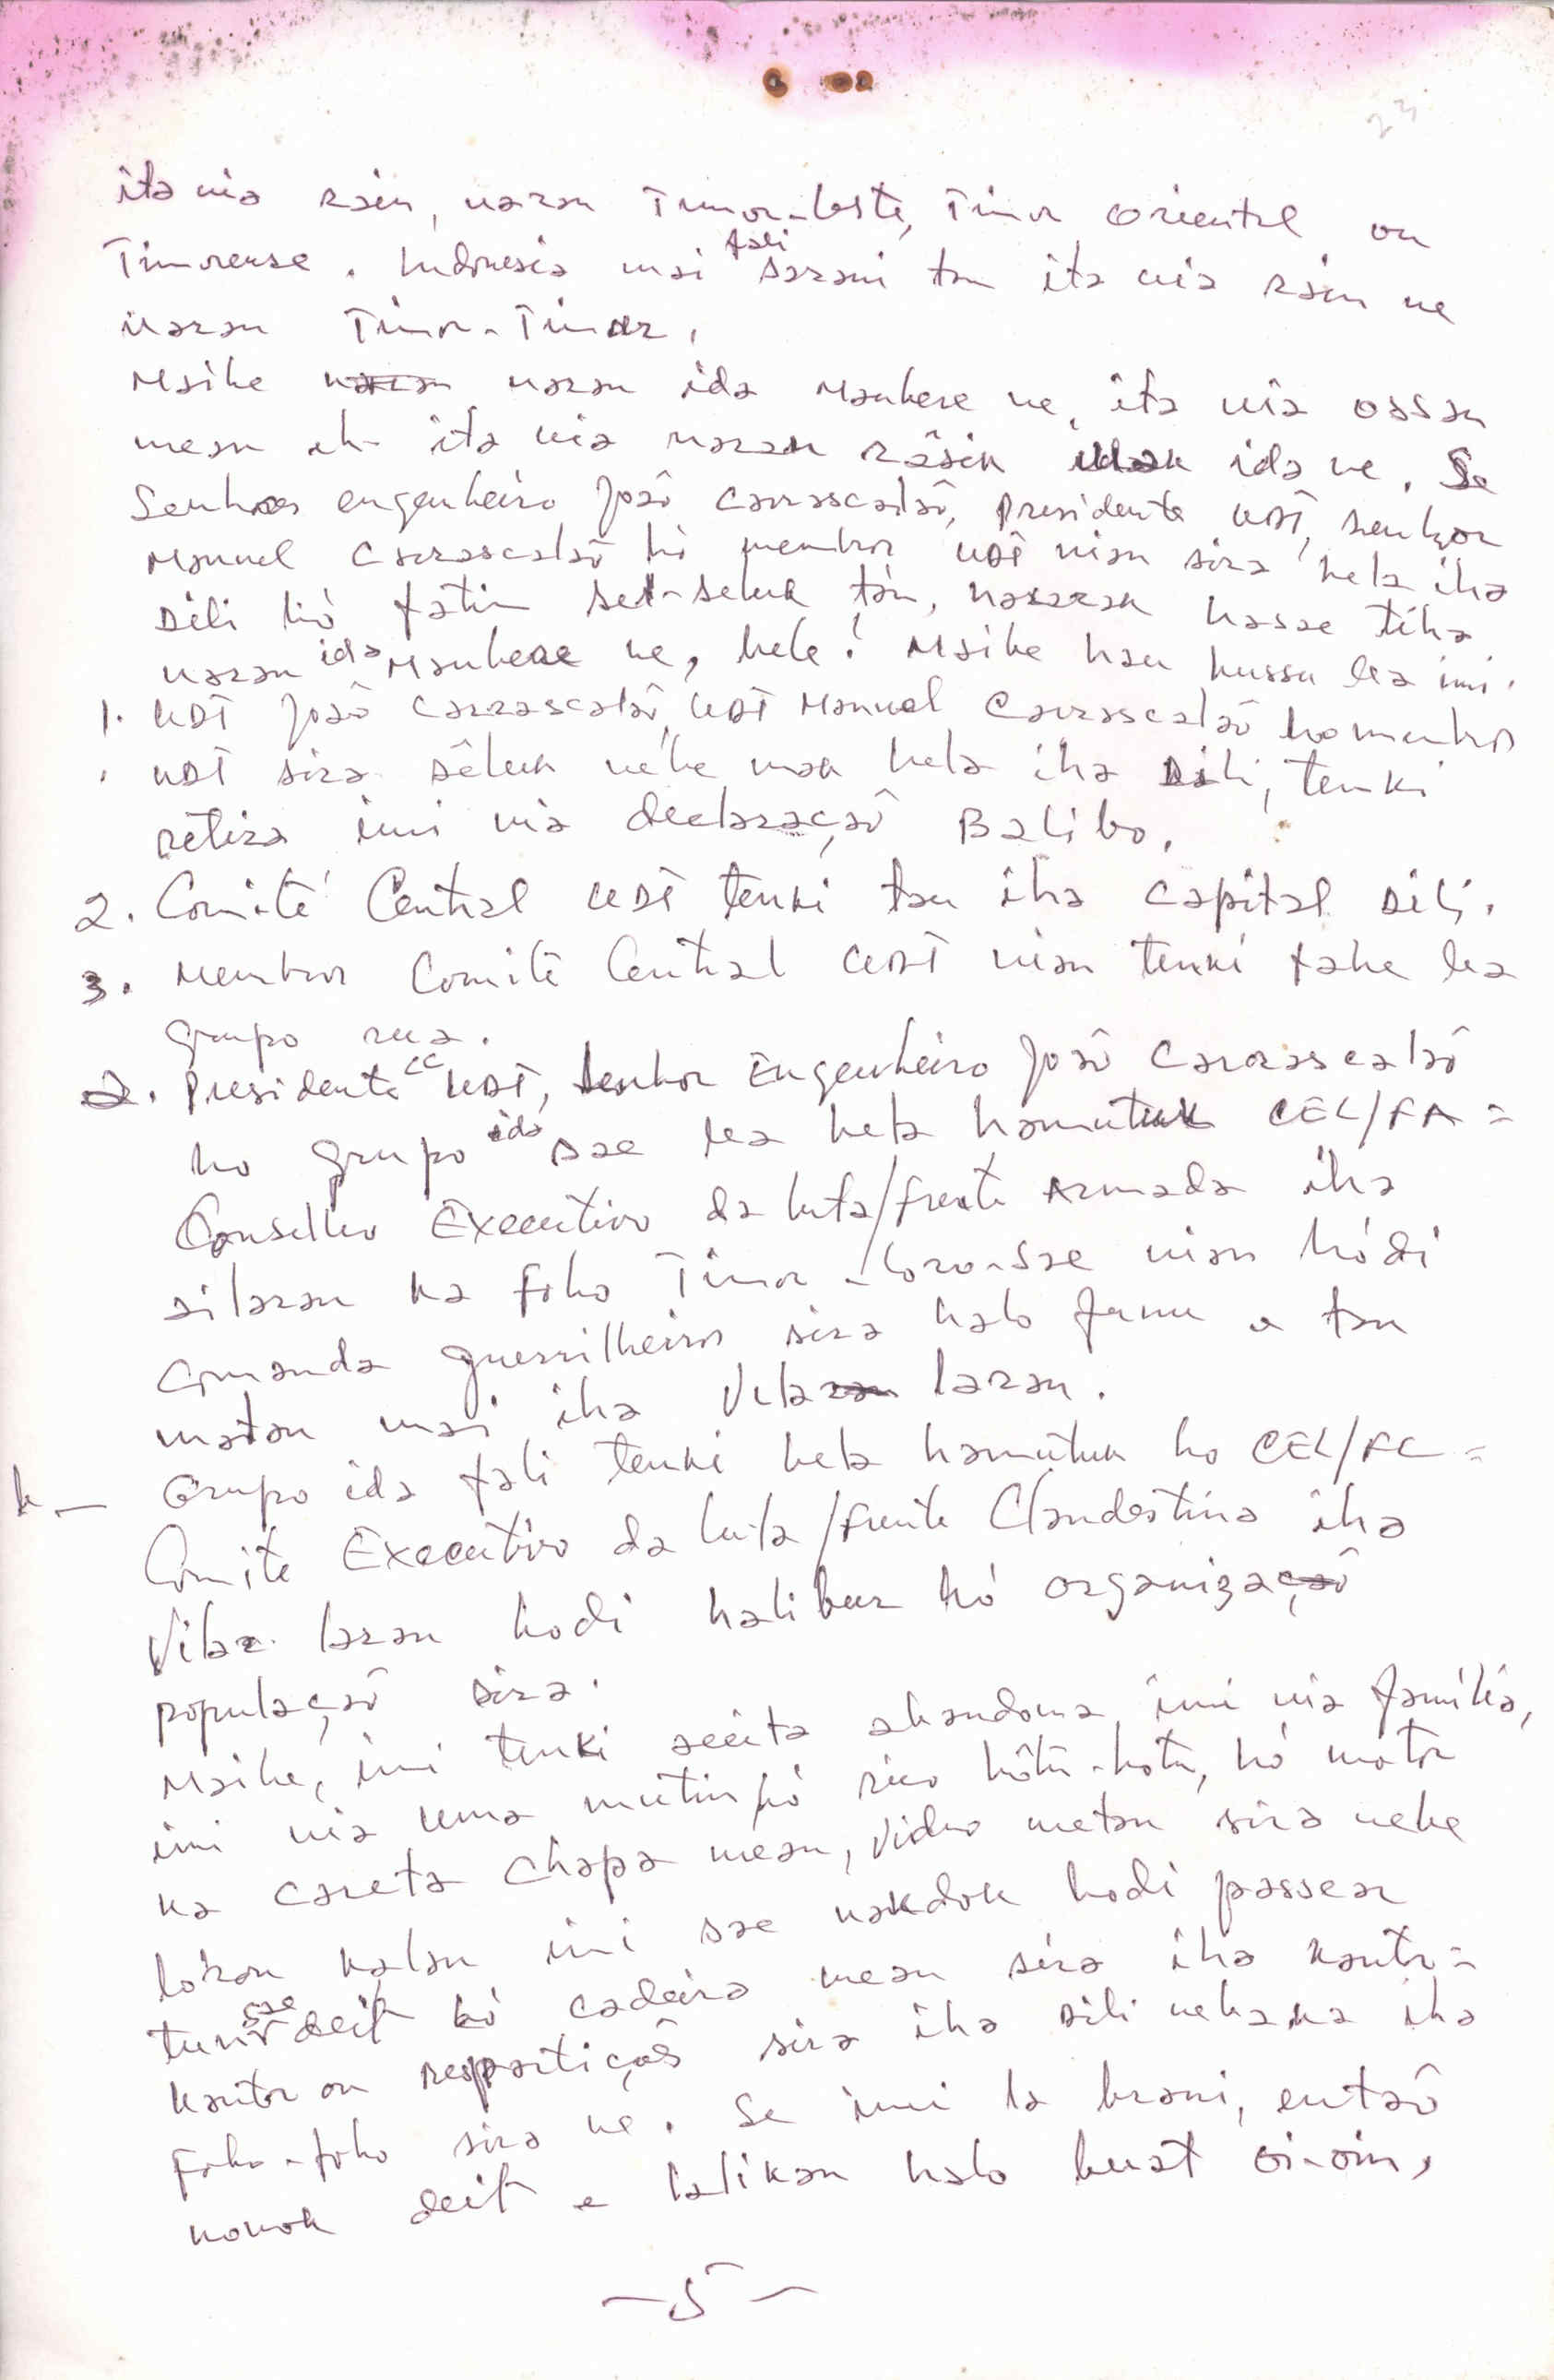 23
ita nia rain, naran Timor-Leste, Timor Oriental ou
Timorense. Indonesia mai fali sarani tan ita nia rain ne
naran Timor-Timur.
Maibe naran naran ida Maubere ne, ita nia ossan
mean eh ita nia naran rásik idak ida ne. Se
Senhor engenheiro João Carrascalaõ, Presidente UDT, senhor
Manuel Carrascalaõ hó membros UDT nian sira hela iha
Dili hó fátin sel-seluk tán, hakarak hasae tiha
naran ida Maubere ne, bele! Maibe hau hussu ba imi.
1. UDT João Carrascalaõ, UDT Manuel Carrascalaõ ho membros
UDT sira séluk nébe mak hela iha Dili, tenki
retira imi nia declaraçaõ Balibo.
2. Comité Central UDT tenki tau iha capital Dili.
3. Membros Comité Central UDT nian tenki fahe ba
grupo rua.
a. Presidente CC UDT, Senhor Engenheiro João Carrascalaõ
ho grupo ida sae ba hela hamutuk CEL/FA =
Conselho Executivo da Luta/Frente Armada iha
ailaran ka foho Timor-Loro-Sae nian hódi
comanda guerrilheiros sira halo funu e tau
matan mai iha Vila ran laran.
b - Grupo ida fali tenki hela hamútuk ho CEL/FC =
Comite Executivo da Luta/Frente Clandestina iha
Vila laran hodi halibur hó organizaçaõ
populaçaõ sira.
Maibe, imi tenki aceita abandona imi nia família,
imi nia uma mutin hó rico hótu-hotu, hó motor
ka careta chapa mean, video metan sira nebe
loron kalan imi sae nakdok hodi passear
tun sae deit hó cadeira mean sira iha kantor=
kantor ou repartiçoẽs sira iha Dili nebaka iha
foho-foho sira ne. Se imi la brani, entaõ
nonok deit e lalikan halo buat oi-oin,
-5-